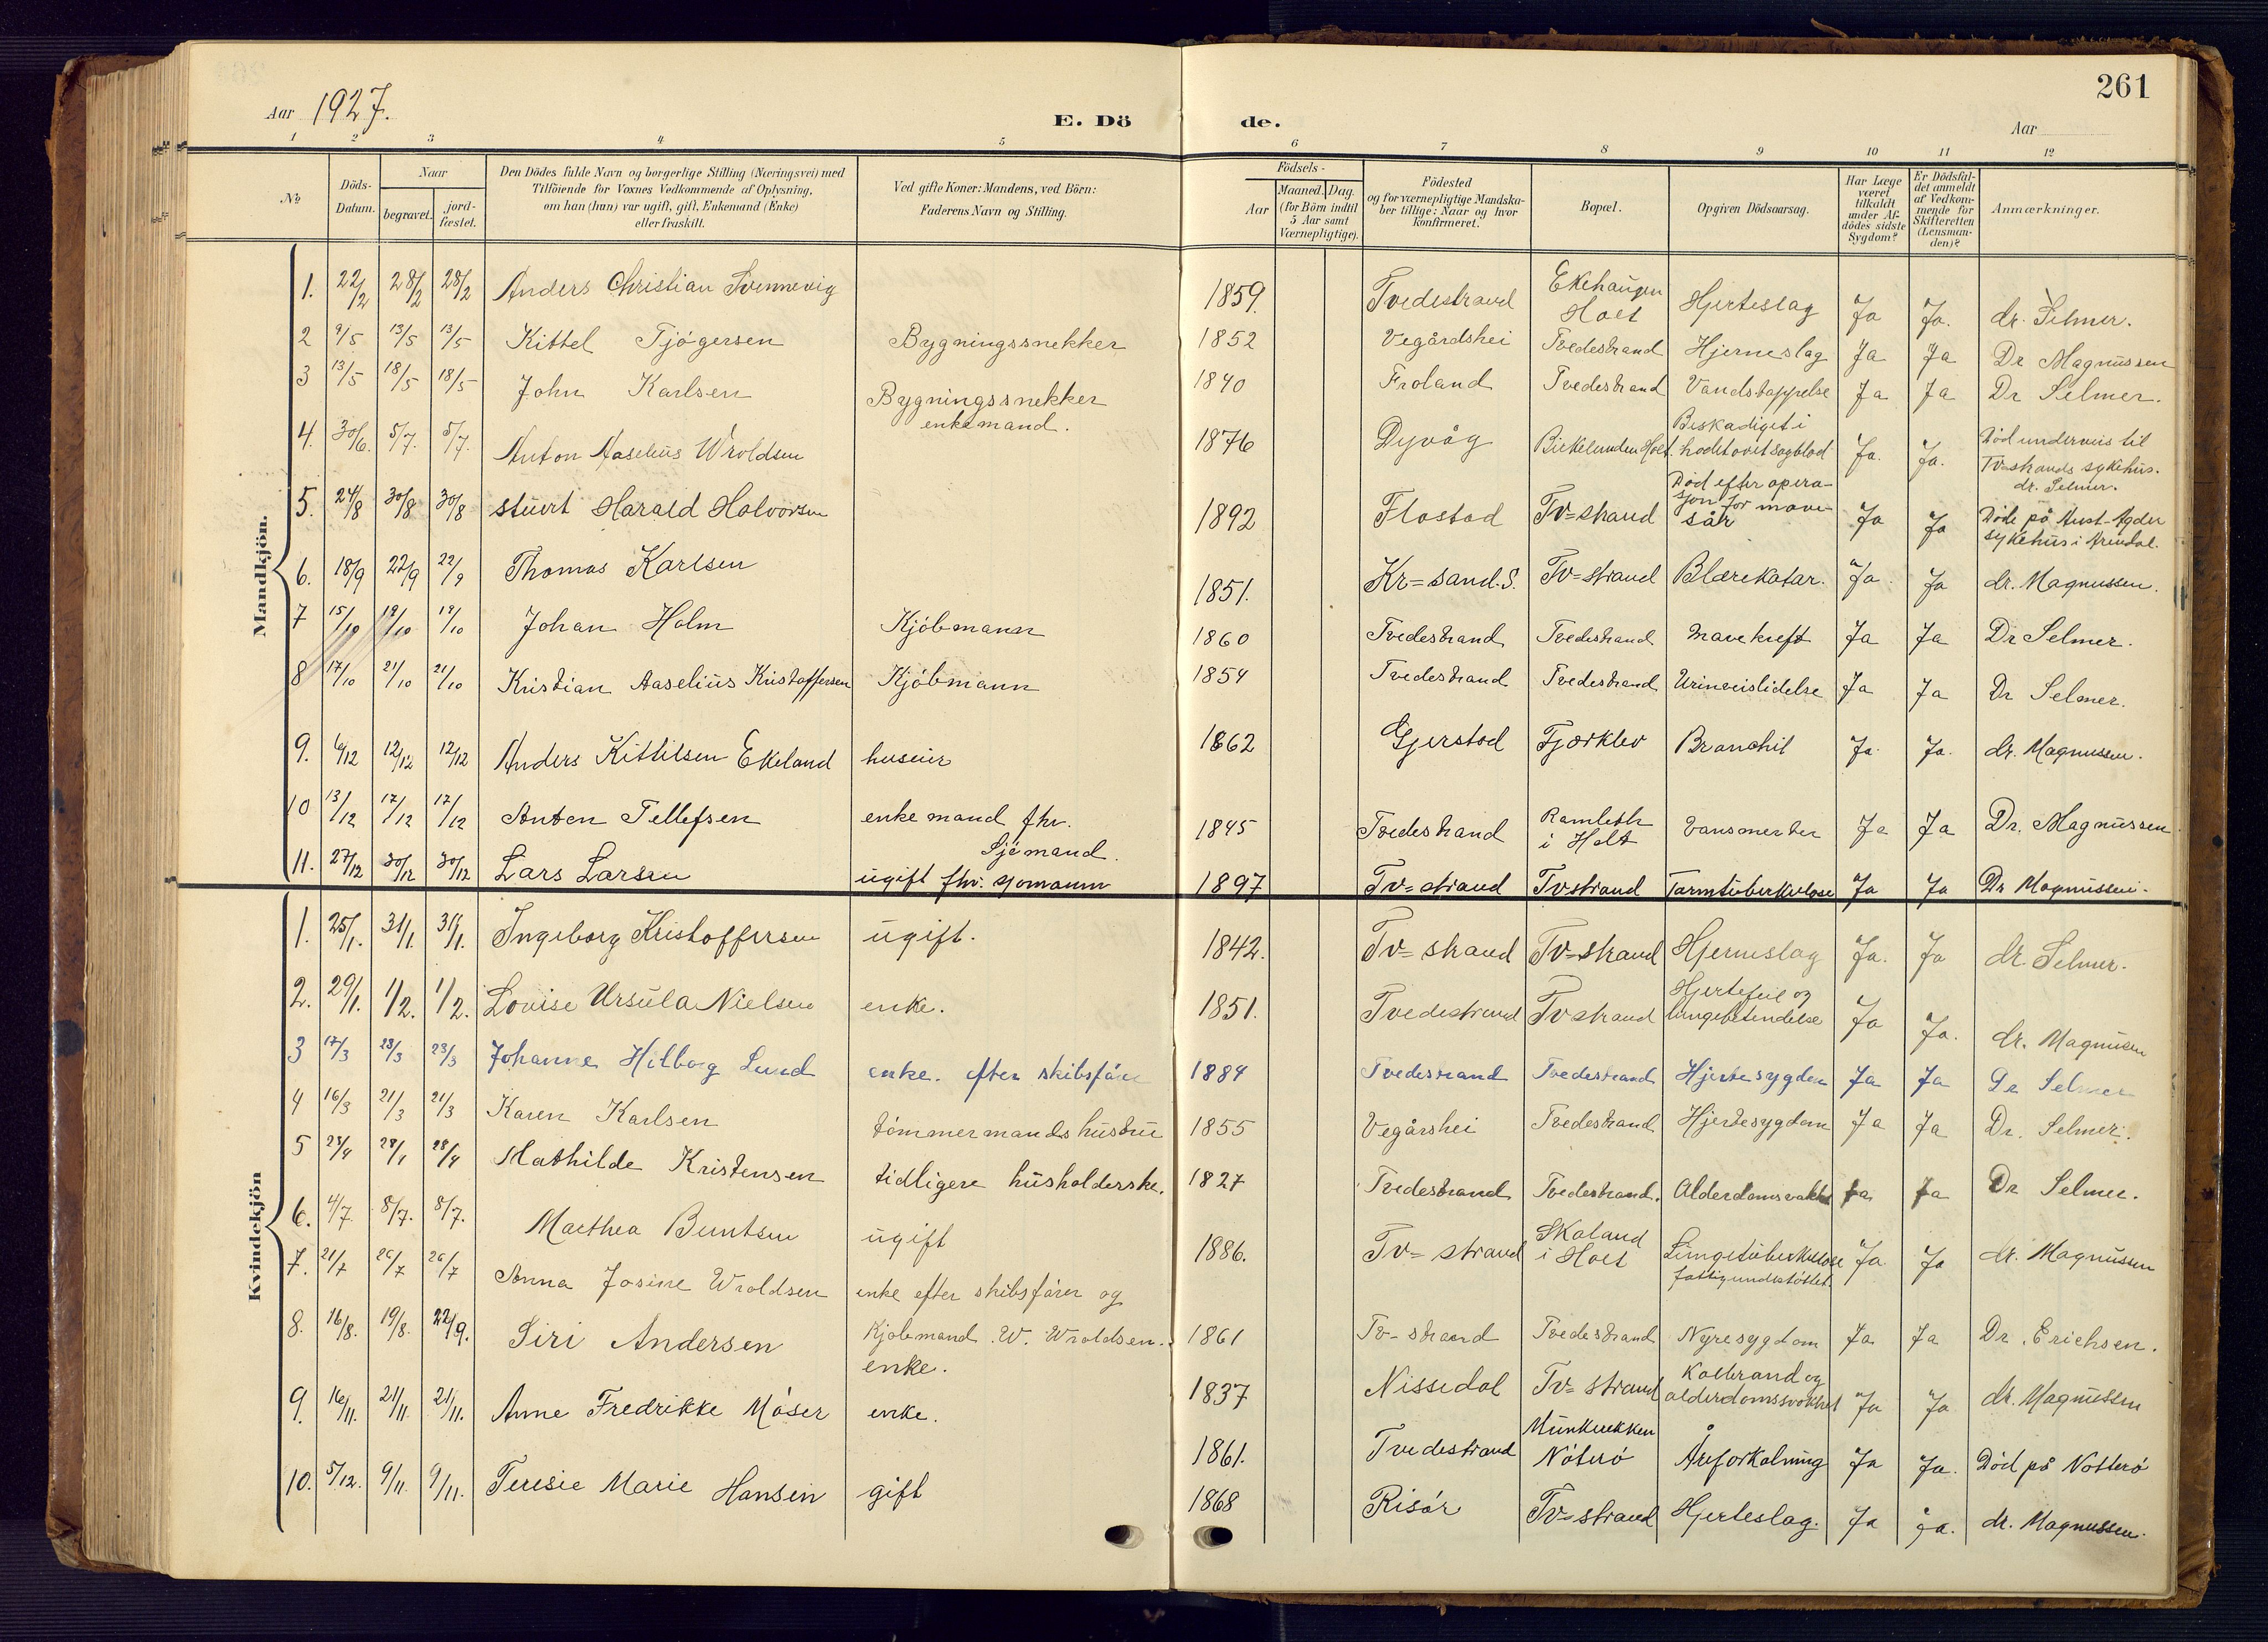 261
Aar 1927.
E. Dö de.
Aar
1 2 3 4 5 6 7 8 9 10 11 12
No
Döds-Datum.
Naar
begravet.
jord-fæstet.
Den Dödes fulde Navn og borgerlige Stilling (Næringsvei) med
Tilföiende for Voxnes Vedkommende af Oplysning,
om han (hun) var ugift, gift, Enkemand (Enke)
eller fraskilt.
Ved gifte Koner: Mandens, ved Börn:
Faderens Navn og Stilling.
Födsels-
Aar
Maaned. Dag.
(for Börn indtil
5 Aar samt
Værnepligtige).
Födested
og for værnepligtige Mandska-
ber tillige: Naar og hvor
konfirmeret.
Bopæl.
Opgiven Dödsaarsag.
Har Læge
været
tilkaldt
under Af-
dödes sidste
Sygdom?
Er Dödsfal-
det anmeldt
af Vedkom-
mende for
Skifteretten
(Lensman-
den)?
Anmærkninger.
Mandkjön.
1. 22/2 28/2 28/2 Anders Christian Svennevig 1859. Tvedestrand Ekehaugen Holt Hjerteslag Ja Ja. dr. Selmer.
2 9/5 13/5 13/5 Kittel Tjøgersen Bygningssnekker 1852 Vegårdshei Tvedestrand Hjerneslag Ja Ja Dr Magnussen
3 13/5 18/5 18/5 John Karlsen Bygningssnekker enkemand. 1840 Froland Tvedestrand Vandstoppelse Ja Ja Dr Selmer.
4. 30/6. 5/7. 5/7. Anton Aaselius Wroldsen 1876 Dyvåg Birkelunden Holt. Beskadiget i hodet av et sagblad Ja. Ja. Død underveis til Tv=strands sykehus. dr. Selmer.
5. 24/8 30/8 30/8 stuert Harald Halvorsen 1892 Flostad Tv=strand Død efter operasjon for mavesår Ja Ja Døde på Aust-Agder sykehus i Arendal.
6. 18/9 22/9 22/9 Thomas Karlsen 1851. Kr=sand.S. Tv=strand Blærekatar. Ja. Ja dr. Magnussen.
7 15/10 19/10 19/10 Johan Holm Kjøbmann 1860 Tvedestrand Tvedestrand Mavekreft Ja Ja Dr Selmer.
8 17/10 21/10 21/10 Kristian Aaselius Kristoffersen Kjøbmann 1854 Tvedestrand Tvedestrand Urinveislidelse Ja Ja Dr Selmer.
9. 6/12 12/12 12/12 Anders Kittilsen Ekeland huseier 1862 Gjerstad Fjærklev Bronchit Ja. Ja. dr. Magnussen.
10 13/12 17/12 17/12 Anton Tellefsen enkemand fhv. Sjømand. 1845 Tvedestrand i Holt Ja Ja Dr. Magnussen
11. 27/12 30/12 30/12 Lars Larsen ugift fhv. sjømann 1897 Tv=strand Tvstrand Tarmtuberkulose Ja Ja Dr Magnussen.
Kvindekjön
1. 25/1. 31/1 31/1. Ingeborg Kristoffersen ugift. 1842. Tv=strand Tv=strand Hjerneslag Ja. Ja dr. Selmer.
2. 29/1. 1/2. 1/2. Lovise Ursula Nielsen enke. 1851. Tvedestrand Tvstrand Hjertefeil og lungebetendelse Ja Ja. dr. Magnussen
3 17/3 23/3 23/3 Johanne Hilborg Lund enke. efter skibsfører 1884 Tvedestrand Tvedestrand Hjertesygdom Ja Ja Dr Selmer
4 16/3 21/3 21/3 Karen Karlsen tømmermands hustru 1855 Vegårshei Tvedestrand Hjertesygdom Ja Ja Dr. Selmer.
5 23/4 28/4 28/4 Mathilde Kristensen tidligere husholderske. 1827 Tvedestrand Tvedestrand. Alderdomsvakhet Ja Ja Dr Selmer.
6. 4/7. 8/7. 8/7. Marthea Berntsen ugift 1886. Tv=strand Skaland i Holt Lungetuberkulose fattigunderstøttet Ja Ja dr. Magnussen
7. 21/7 26/7 26/7 Anna Josine Wroldsen enke efter skibsfører og Kjøbmand W. Wroldsen. 1861 Tv-strand Tvedestrand Nyresygdom Ja Ja Dr. Erichsen.
8. 16/8. 19/8. 22/9. Siri Andersen enke. 1837 Nissedal Tv=strand Kolbrand og alderdomssvakhet Ja Ja dr. Magnussen
9. 16/11. 21/11. 21/11. Anne Fredrikke Møser enke. 1861. Tvedestrand Munkerekken Nøterø Åreforkalning Ja Ja. Død på Nøtterø
10. 5/12. 9/11. 9/11. Teresie Marie Hansen gift 1868 Risør Tv=strand Hjerteslag. Ja Ja. dr. Magnussen.